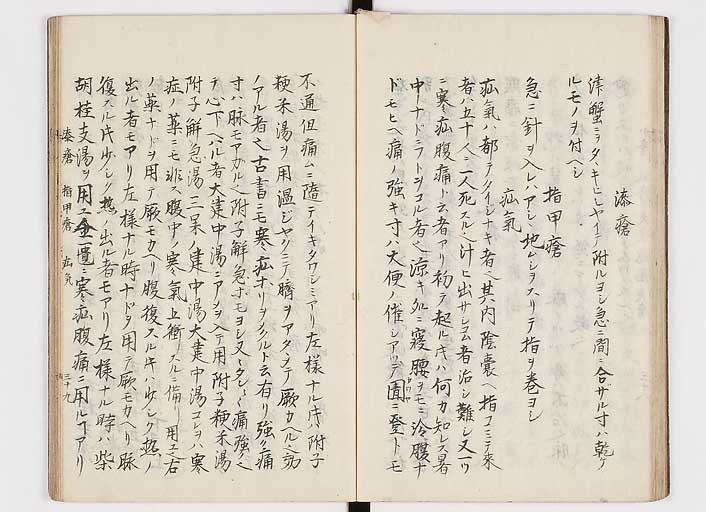 漆瘡
津蟹ヲタヽキヒシヤイテ附ルヨシ急ニ間ニ合ザル寸ハ乾ケ
ルモノヲ付ヘシ
指甲瘡
急ニ針ヲ入レハアシ地レシヲスリテ指ヲ巻ヨシ
疝氣
疝氣ハ都テタイシナキ者也其内陰嚢ヘ指コミテ来
者ハ五十人ニ一人死スル也汁ヒ出サシム者治シ難シ又下リ
ニ寒疝腹痛ト云者アリ初テ起ルキハ何カ知レス暑
中ーナドニフトヲコル者也涼キ処ニ寝腰ヲモニ冷腹ナ
ドモヒヘ痛ノ強キ寸ハ大便ノ催シアリテ圊ニ登トモ
不通但痛ムニ随テイキタワシミアリ左様ナルキハ附子
粳米湯ヲ用温ジヤクニテ臍ヲアタヽメテ厥カヘルト効
ノアル者也古書ニモ寒疝ホリヲクルト云有リ強ク痛
寸ハ脉モアガル也附子解急ホモヨシ又ハタシ痛強ク
テ心下ヘハル者大建中湯ニアメヲ入テ用附子粳米湯
附子解急湯三呆ノ建中湯大建中湯コレヲハ寒
症ノ薬ニモ非ス腹中ノ寒氣上衝スルニ備リ用ユ右
ノ薬ナドヲ用テ厥モカヘリ腹復スルキハ少シク熱ノ
出ル者モアリ左様ナル時ナドタ用テ厥モカヘリ脉
復スルキ少シク熱ノ出ル者モアリ左様ナル時ハ柴
胡桂支湯ヲ用ユ全體ニ寒疝腹痛ニ用ルヿアリ
漆瘡 指甲瘡 疝気 三十九